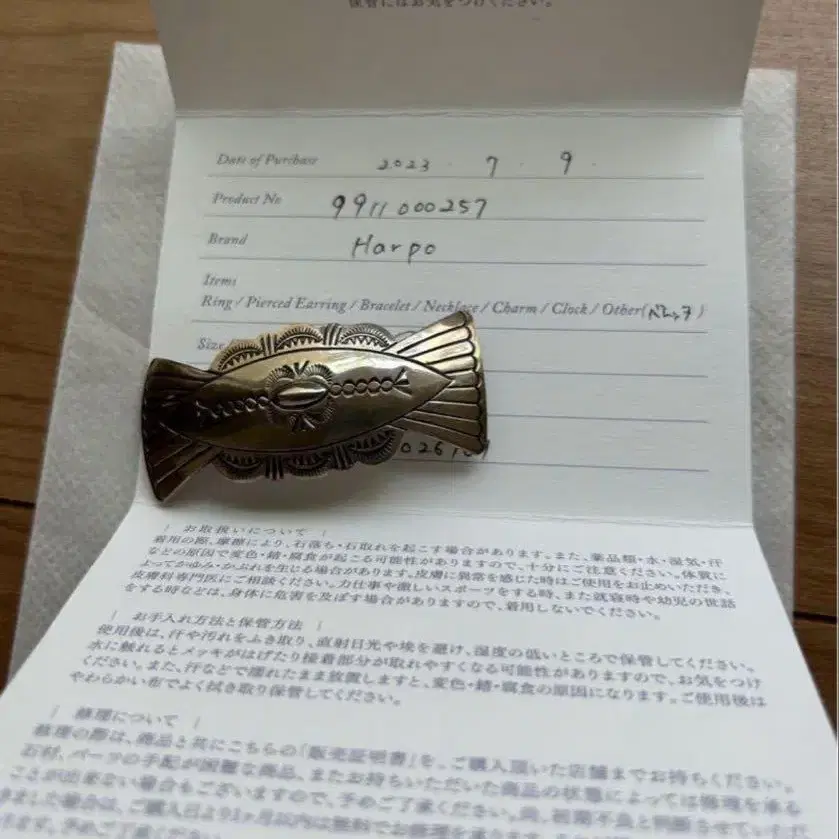 保管にはお気をつけください。
Date of Purchase 2023 . 7 . 9 .
Product No 9911000257
Brand Harpo
Items
Ring / Pierced Earring / Bracelet / Necklace / Charm / Clock / Other(バレッタ)
Size
| お取扱いについて |
着用の際、摩擦により、石落ち・石取れを起こす場合があります。また、薬品類・水・湿気・汗
などの原因で変色・錆・腐食が起こる可能性がありますので、十分にご注意ください。体質に
よってかゆみ・かぶれを生じる場合があります。皮膚に異常を感じた時はご使用をお止めいただき、
皮膚科専門医にご相談ください。力仕事や激しいスポーツをする時、また就寝時や幼児の世話
をする時などは、身体に危害を及ぼす場合がありますので、着用しないでください。
| お手入れ方法と保管方法 |
使用後は、汗や汚れをふき取り、直射日光や埃を避け、湿度の低いところで保管してください。
水に触れるとメッキがはげたり接着部分が取れやすくなる可能性がありますので、お気をつけ
ください。また、汗などで濡れたまま放置しますと、変色・錆・腐食の原因になります。ご使用後は
やわらかい布でよく拭き取り保管してください。
| 修理について |
修理の際は、商品と共にこちらの「販売証明書」を、ご購入頂いた店舗までお持ちください。
石材、パーツの手配が困難な商品、またお持ちいただいた商品の状態によっては修理を承る
ことが出来ない場合もございますので、予めご了承ください。尚、初期不良と判断させて
きました場合は、ご購入日より1ヶ月以内は無料でお修理を承ります
ます。予めご了承ください。